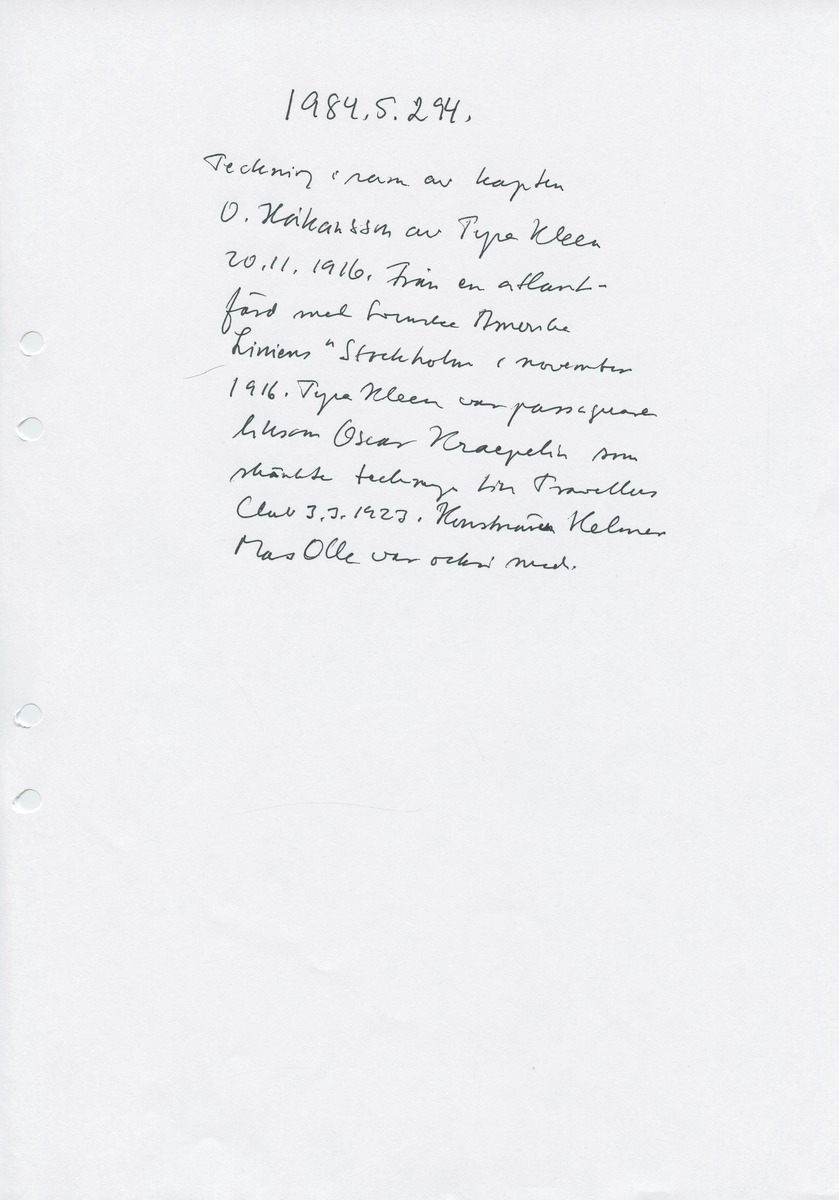 1984.5.294.
Teckning i ram av kapten
O. Håkansson av Tyra Kleen
20.11.1916. Från en atlant-
färd med Svenska Amerika
Liniens "Stockholm i november
1916. Tyra Kleen var passagerare
liksom Oscar Kraepelin som
skänkte teckninge till Travellers
Club 3.3.1923. Konstnären Helmer
Mas Olle var också med.